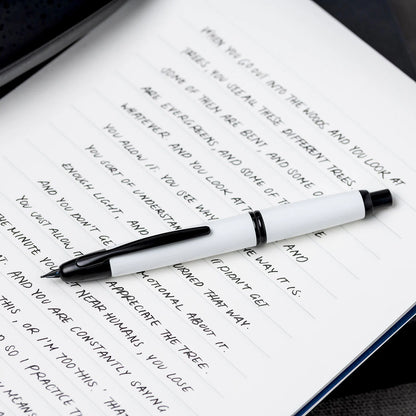 WHEN YOU GO OUT INTO THE WOODS AND YOU LOOK AT
TREES, YOU SEE ALL THESE DIFFERENT TREES.
SOME OF THEM ARE BENT AND SOME
ARE EVERGREENS, AND SOME OF
WHATEVER. AND YOU LOOK AT
YOU ALLOW IT. YOU SEE WHY THE WAY IT IS.
YOU SORT OF UNDERSTAN DIDN'T GET
ENOUGH LIGHT, AND TURNED THAT WAY.
AND YOU DON'T GE MOTIONAL ABOUT IT.
YOU JUST ALLOW APPRECIATE THE TREE.
THE MINUTE NEAR HUMANS, YOU LOSE
AT. AND YOU ARE CONSTANTLY SAYING
THIS, OR I'M TOO THIS. THAT
D SO I PRACTICE
MEANS